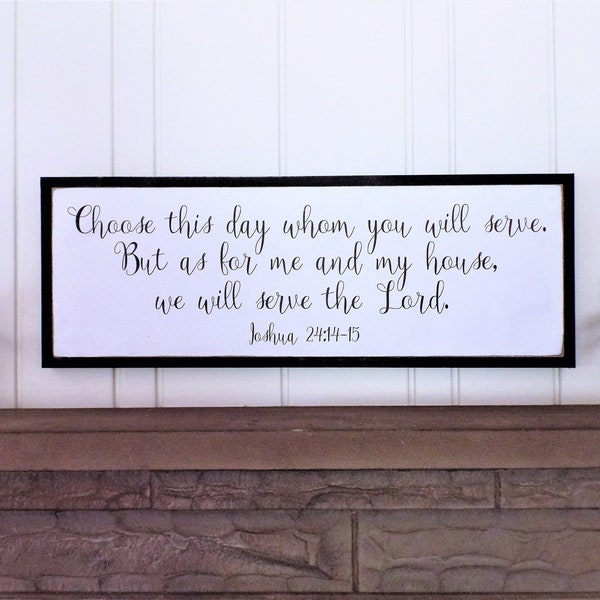 Choose this day whom you will serve.
But as for me and my house,
we will serve the Lord.
Joshua 24:14-15